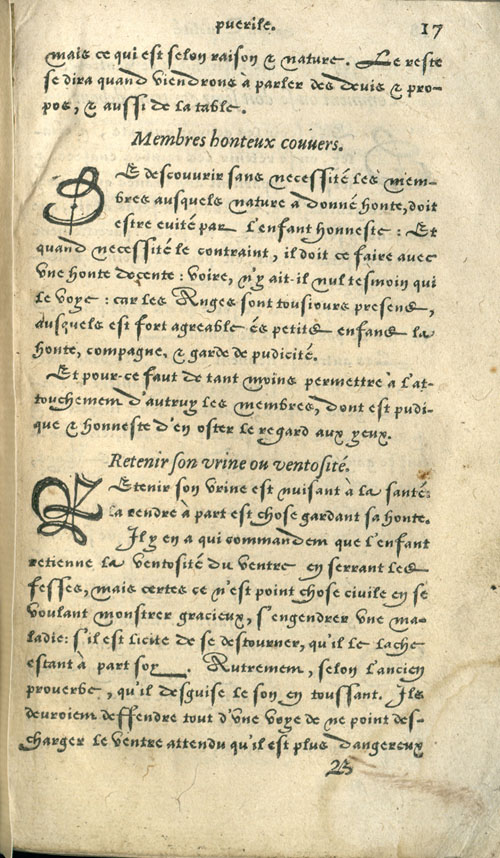 puerile. 17
mais ce qui est selon raison & nature. Le reste
se dira quand viendrons à parler des devis & pro-
pos, & aussi de la table.
Membres honteux couuers.
DE descouvrir sans necessité les mem-
bres ausquels nature a donné honte, doit
estre euité par l'enfant honneste : Et
quand necessité le contraint, il doit ce faire avec
vne honte decente : voire, n'y ait-il nul tesmoin qui
le voye : car les Anges sont tousiours presens,
ausquels est fort agreable és petits enfans la
honte, compagne, & garde de pudicité.
Et pour-ce faut de tant moins permettre à l'at-
touchement d'autruy les membres, dont est pudi-
que & honneste d'en oster le regard aux yeux.
Retenir son vrine ou ventosité.
REtenir son vrine est nuisant à la santé:
la rendre à part est chose gardant sa honte.
Il y en a qui commandent que l'enfant
retienne la ventosité du ventre en serrant les
fesses, mais certes ce n'est point chose civile en se
voulant monstrer gracieux, s'engendrer vne ma-
ladie: s'il est licite de se destourner, qu'il le lache
estant à part soy. Autrement, selon l'ancien
proverbe, qu'il desguise le son en toussant. Ils
devroient deffendre tout d'vne voye de ne point des-
charger le ventre attendu qu'il est plus dangereux
B